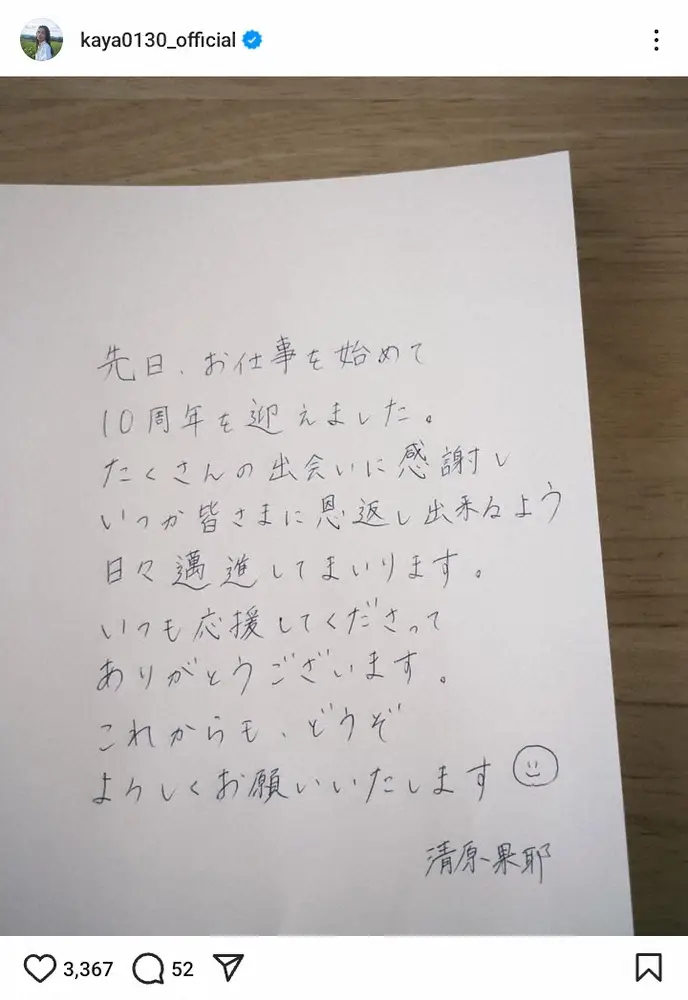 kaya0130_official
先日、お仕事を始めて
10周年を迎えました。
たくさんの出会いに感謝し
いつか皆さまに恩返し出来るよう
日々邁進してまいります。
いつも応援してくださって
ありがとうございます。
これからも、どうぞ
よろしくお願いいたします
清原果耶
3,367 52